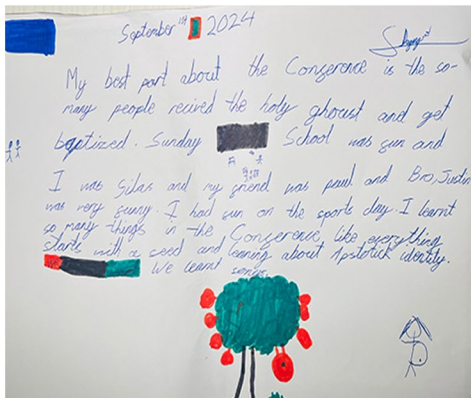 September 2024
My best part about the Conference is the so-
many people recived the holy ghoust and get
baptized. Sunday School was fun and
I was Silas and my friend was paul and Bro, Justin
was very funny. I had fun on the sports day. I learnt
so many things in the Conference like everything
starts with a seed and leaning about Apstolick identity.
We learnt songs